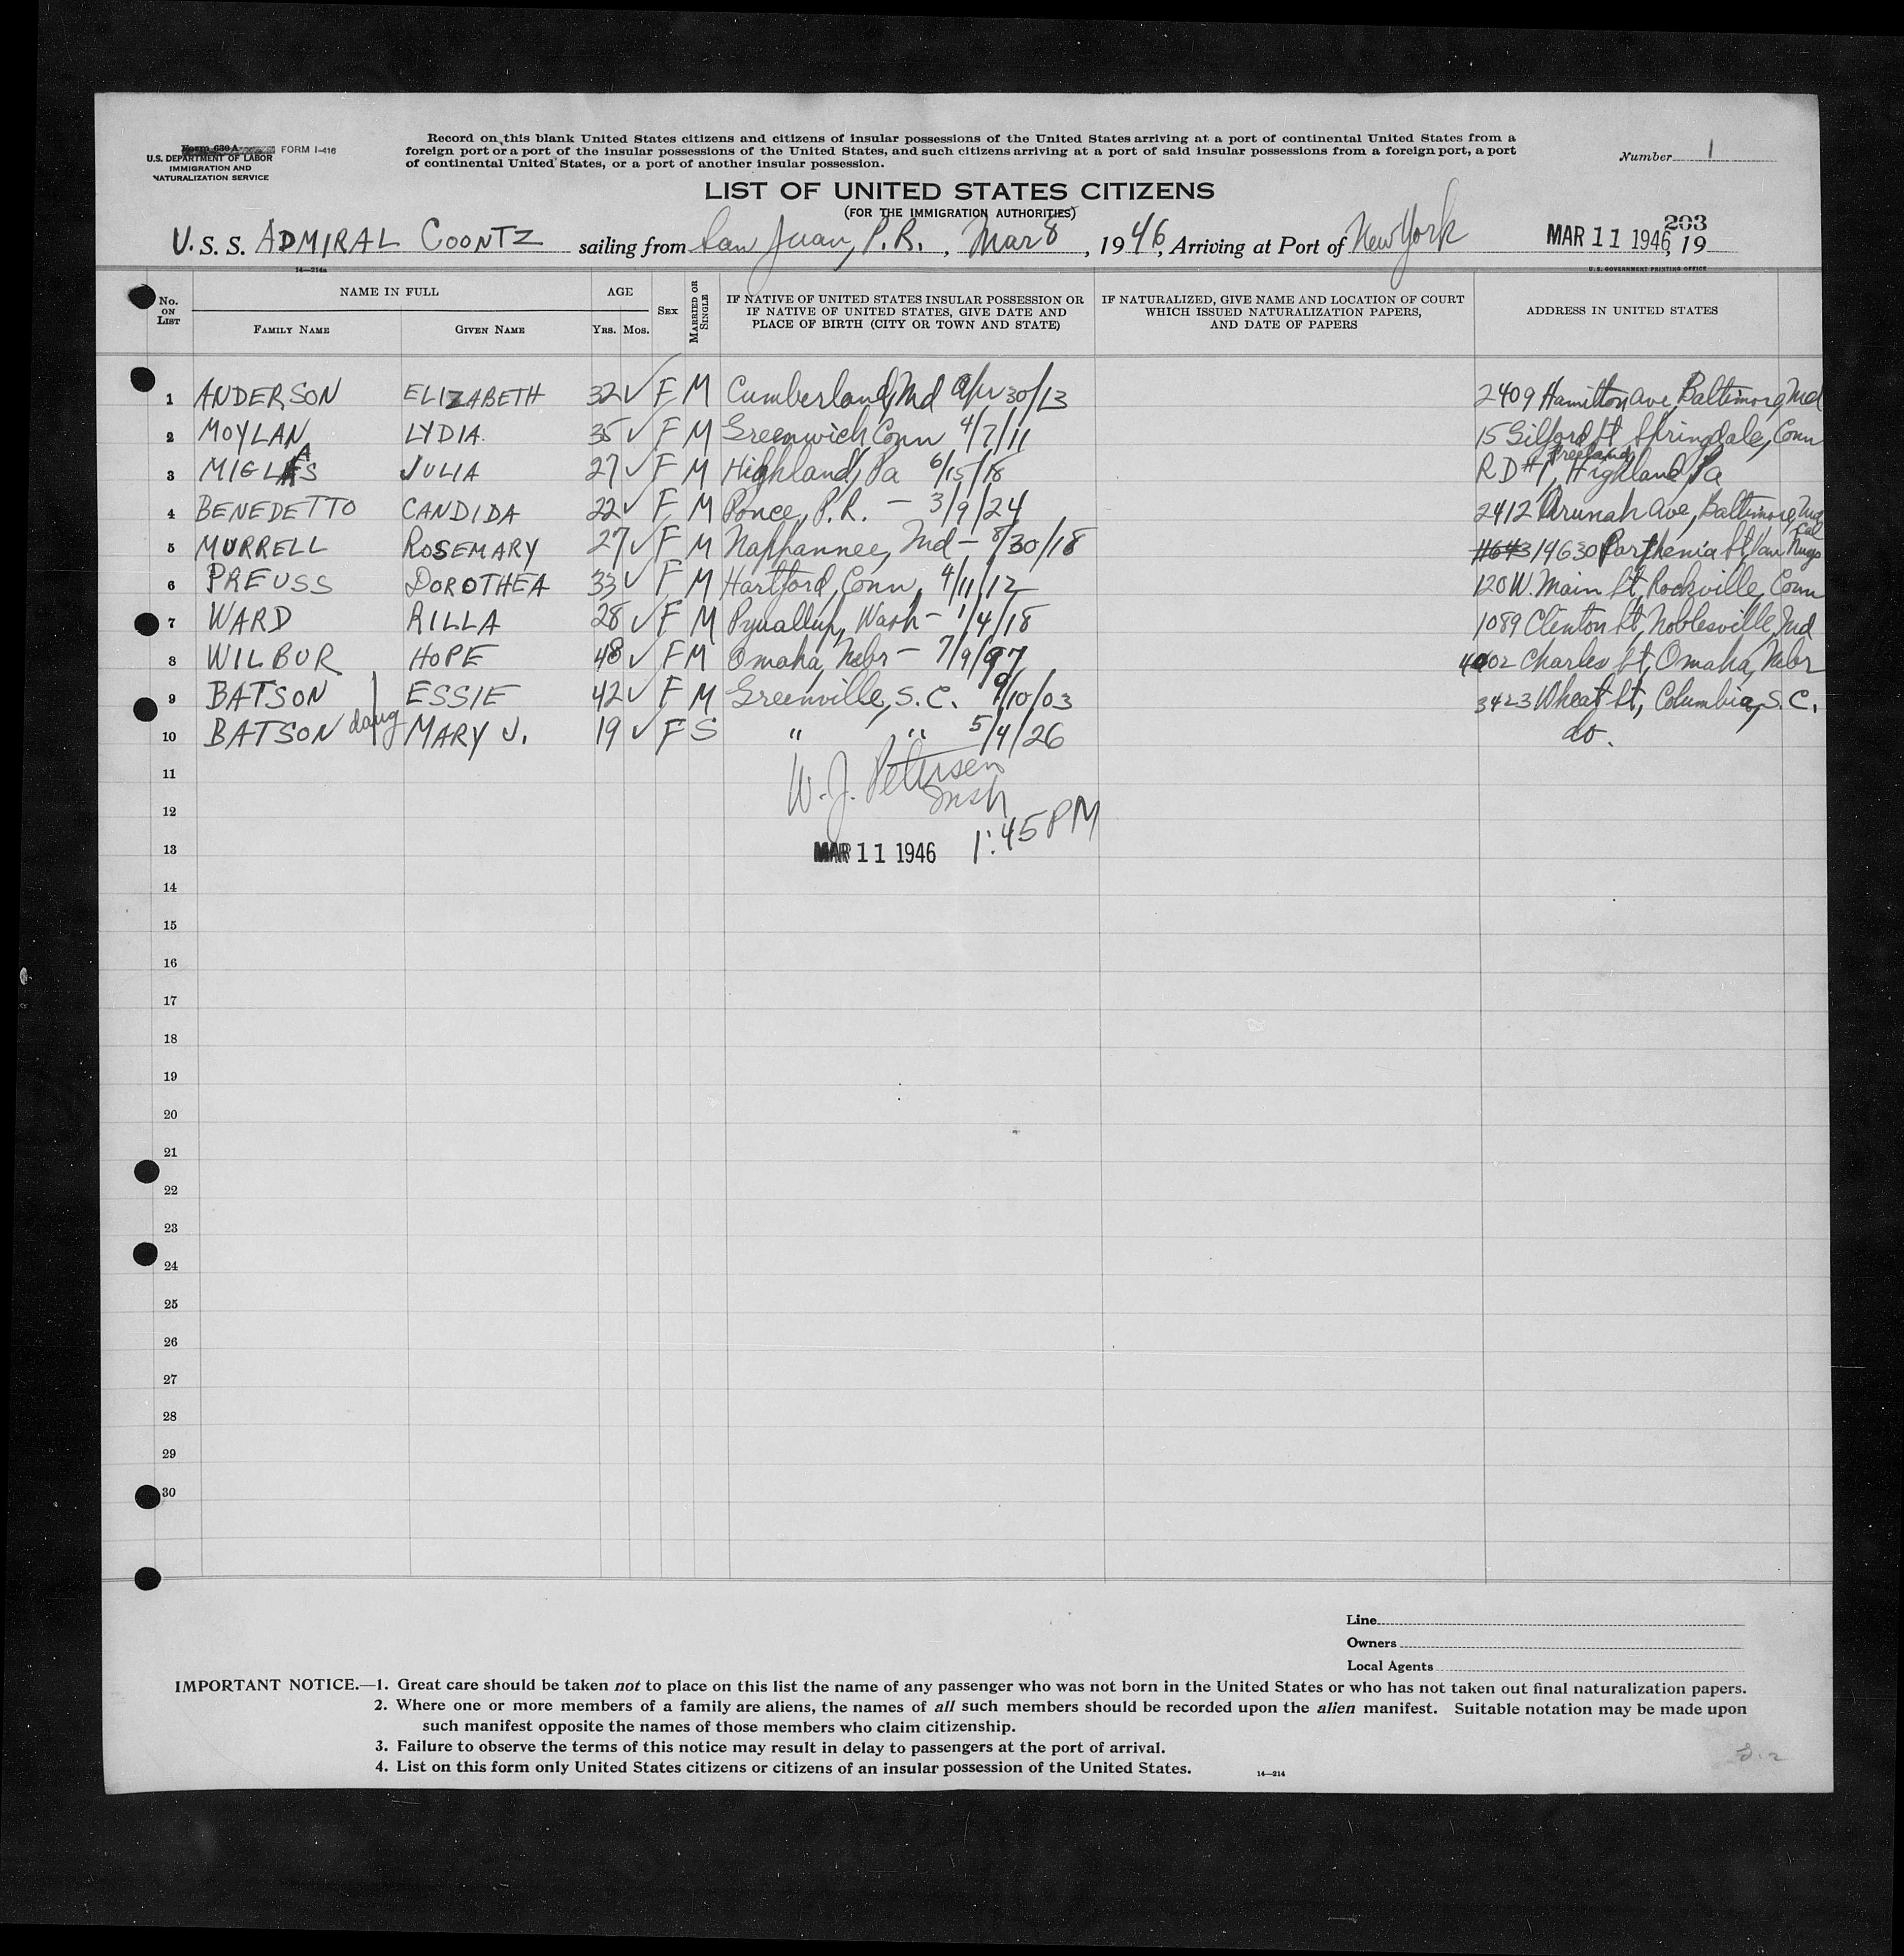 Form 630-A FORM I-416
U.S. DEPARTMENT OF LABOR
IMMIGRATION AND
NATURALIZATION SERVICE
Record on this blank United States citizens and citizens of insular possessions of the United States arriving at a port of continental United States from a
foreign port or a port of the insular possessions of the United States, and such citizens arriving at a port of said insular possessions from a foreign port, a port
of continental United States, or a port of another insular possession.
Number 1
LIST OF UNITED STATES CITIZENS
(FOR THE IMMIGRATION AUTHORITIES)
203
U. S. S. ADMIRAL COONTZ sailing from San Juan, P.R., Mar 8, 1946, Arriving at Port of New York MAR 11 1946, 19
14—214a
U.S. GOVERNMENT PRINTING OFFICE
No. ON LIST NAME IN FULL FAMILY NAME GIVEN NAME AGE YRS. MOS. SEX MARRIED OR SINGLE IF NATIVE OF UNITED STATES INSULAR POSSESSION OR IF NATIVE OF UNITED STATES, GIVE DATE AND PLACE OF BIRTH (CITY OR TOWN AND STATE) IF NATURALIZED, GIVE NAME AND LOCATION OF COURT WHICH ISSUED NATURALIZATION PAPERS, AND DATE OF PAPERS ADDRESS IN UNITED STATES
1 ANDERSON ELIZABETH 32 ✓ F M Cumberland, Md Apr 30/13 2409 Hamilton Ave, Baltimore, Md
2 MOYLAN LYDIA. 35 ✓ F M Greenwich Conn 4/7/11 15 Gilford St Springdale, Conn
3 MIGLAS JULIA 27 ✓ F M Highland, Pa 6/15/18 R D #1, Freeland Highland Pa
4 BENEDETTO CANDIDA 22 ✓ F M Ponce, P.R. — 3/9/24 2412 Arunah Ave, Baltimore, Md
5 MURRELL ROSEMARY 27 ✓ F M Nappannee, Ind — 8/30/18 14630 Parthenia St, Van Nuys Cal
6 PREUSS DOROTHEA 33 ✓ F M Hartford, Conn, 4/11/12 120 W. Main St, Rockville, Conn
7 WARD RILLA 28 ✓ F M Pyuallup, Wash — 1/4/18 1089 Clinton St, Noblesville, Ind
8 WILBUR HOPE 48 ✓ F M Omaha, Nebr — 7/9/97 4002 Charles St, Omaha, Nebr
9 BATSON ESSIE 42 ✓ F M Greenville, S.C. 9/10/03 3423 Wheat St, Columbia, S.C.
10 BATSON daug MARY J. 19 ✓ F S " " 5/4/26 do.
11 W. J. Petersen
12 Insp
13 MAR 11 1946 1:45 PM
14
15
16
17
18
19
20
21
22
23
24
25
26
27
28
29
30
Line
Owners
Local Agents
IMPORTANT NOTICE.—1. Great care should be taken not to place on this list the name of any passenger who was not born in the United States or who has not taken out final naturalization papers.
2. Where one or more members of a family are aliens, the names of all such members should be recorded upon the alien manifest. Suitable notation may be made upon
such manifest opposite the names of those members who claim citizenship.
3. Failure to observe the terms of this notice may result in delay to passengers at the port of arrival.
4. List on this form only United States citizens or citizens of an insular possession of the United States.
14—214